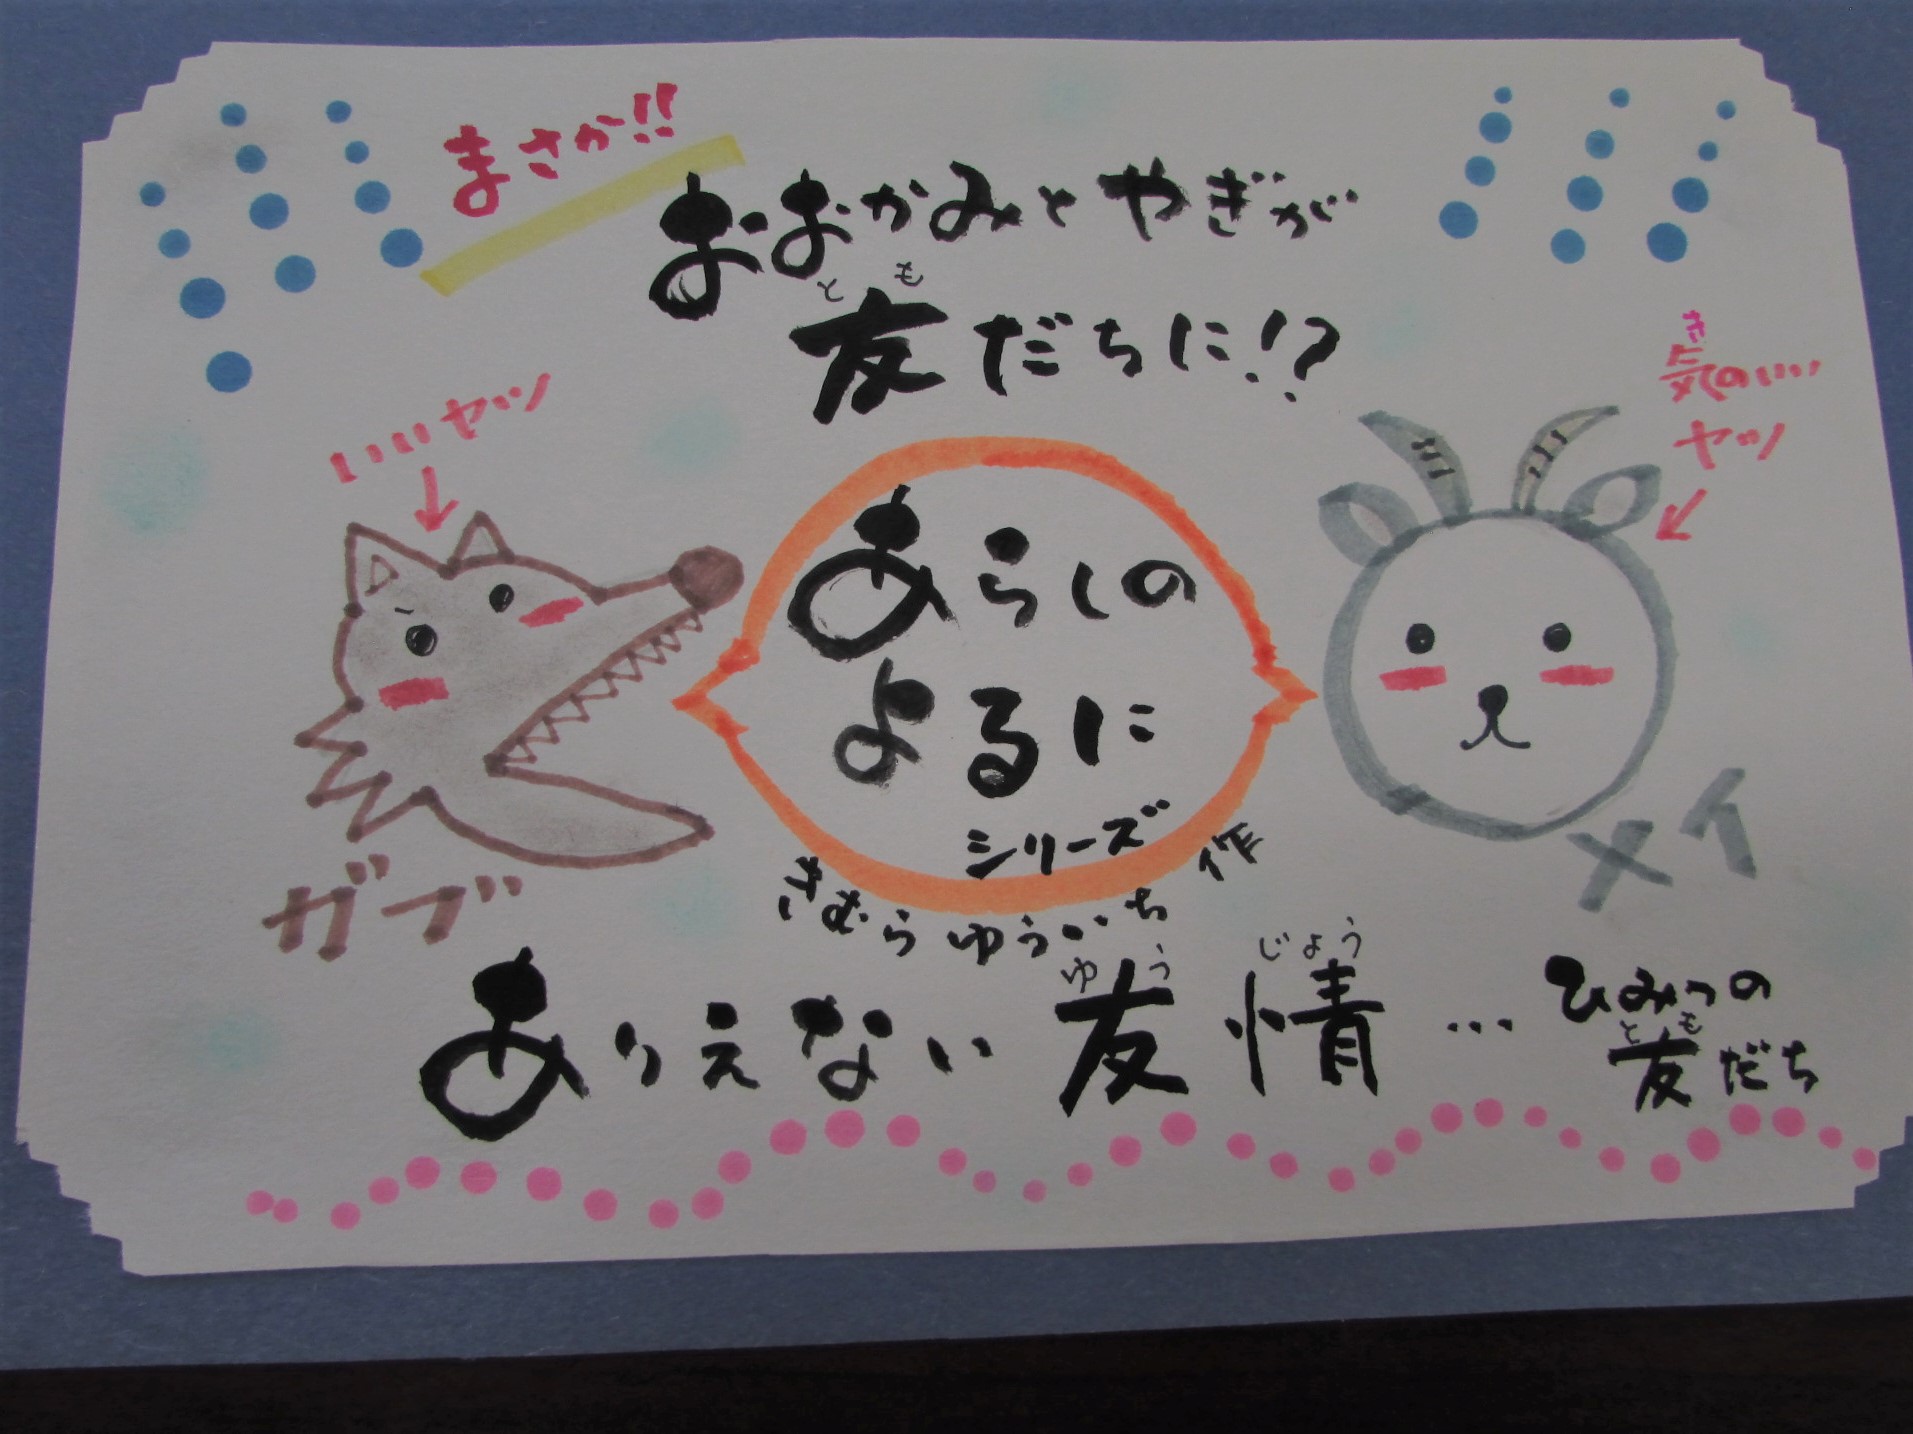 まさか!!
おおかみとやぎが
友だちに!?
とも
いいヤツ
気のいい
き
ヤツ
あらしの
よるに
シリーズ
きむらゆういち 作
ガブ
メイ
ありえない友情…
ゆうじょう
ひみつの
友だち
とも